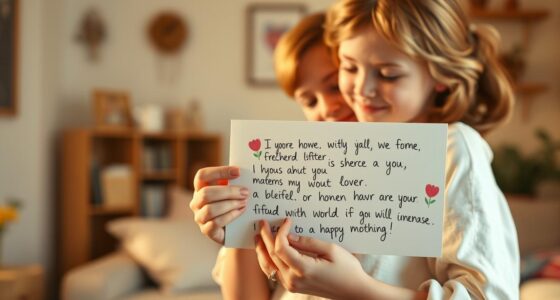 I yoore home, witly yall, we fome,
frecherd lifter is sherce a you,
I hyous ahut you
materns my wout lover.
a bleifel, or honen havr are your
fifud with world if goo will imenase.
to a happy mothing!